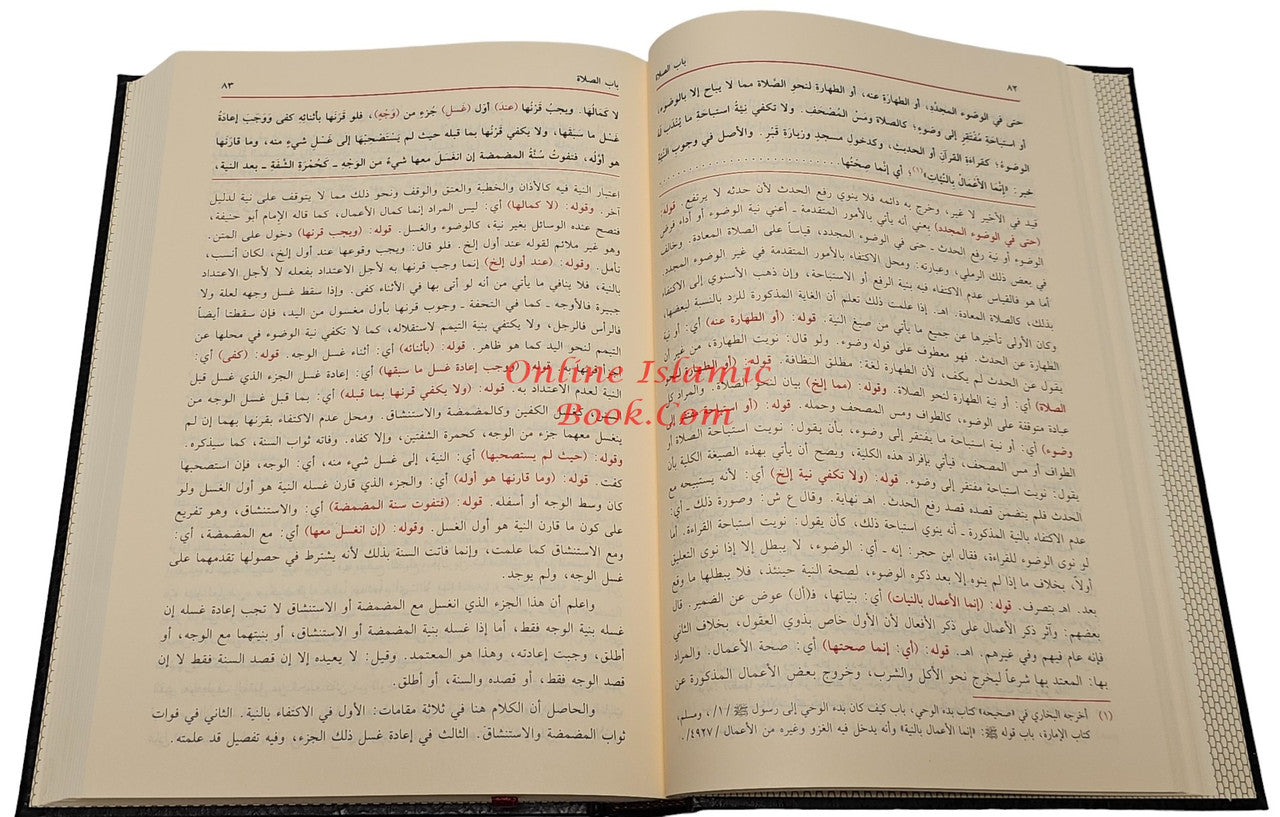 ٨٢
باب الصلاة
حتى في الوضوء المجدَّد، أو الطهارة عنه، أو الطهارة لنحو الصَّلاة مما لا يباح إلا بالوضوء،
أو استباحة مُفْتَقِر إلى وضوء؛ كالصلاة ومَسِّ المُصْحَف. ولا تكفي نيَّةُ استباحة ما يُنْدَب لَهُ
الوضوءُ؛ كقراءةِ القرآن أو الحديث، وكدخولِ مسجدٍ وزيارَة قَبْر. والأصل في وجوب النيَّة
خبر: «إنَّما الأَعْمَالُ بالنيَّات»(١)؛ أي إنَّما صِحَّتُها
قيد في الأخير لا غير، وخرج به دائمه فلا ينوي رفع الحدث لأن حدثه لا يرتفع. قوله:
(حتى في الوضوء المجدد) يعني أنه يأتي بالأمور المتقدمة ـ أعني نية الوضوء أو أداء فرض
الوضوء أو نية رفع الحدث ـ حتى في الوضوء المجدد، قياساً على الصلاة المعادة. وخالف
في بعض ذلك الرملي، وعبارته: ومحل الاكتفاء بالأمور المتقدمة في غير الوضوء المجدد.
أما هو فالقياس عدم الاكتفاء فيه بنية الرفع أو الاستباحة، وإن ذهب الأسنوي إلى الاكتفاء
بذلك، كالصلاة المعادة. اهـ. إذا علمت ذلك تعلم أن الغاية المذكورة للرد بالنسبة لبعضها،
وكان الأولى تأخيرها عن جميع ما يأتي من صيغ النية. قوله: (أو الطهارة عنه) أي: أو نية
الطهارة عن الحدث. فهو معطوف على قوله وضوء. ولو قال: نويت الطهارة، من غير أن
يقول عن الحدث لم يكف، لأن الطهارة لغة: مطلق النظافة. قوله: (أو الطهارة
الصلاة) أي: أو نية الطهارة لنحو الصلاة. وقوله: (مما إلخ) بيان لنحو الصلاة. والمراد
عبادة متوقفة على الوضوء، كالطواف ومس المصحف وحمله. قوله: (أو استباحة
وضوء) أي: أو نية استباحة ما يفتقر إلى وضوء، بأن يقول: نويت استباحة الصلاة أو
الطواف أو مس المصحف، فيأتي بإفراد هذه الكلية، ويصح أن يأتي بهذه الصيغة الكلية بأن
يقول: نويت استباحة مفتقر إلى وضوء. قوله: (ولا تكفي نية إلخ) أي: لأنه يستبيحه مع
الحدث فلم يتضمن قصده قصد رفع الحدث. اهـ نهاية. وقال ع ش: وصورة ذلك ـ أي:
عدم الاكتفاء بالنية المذكورة ـ أنه ينوي استباحة ذلك، كأن يقول: نويت استباحة القراءة. أما
لو نوى الوضوء للقراءة، فقال ابن حجر: إنه ـ أي: الوضوء، لا يبطل إلا إذا نوى التعليق
أولاً، بخلاف ما إذا لم ينوه إلا بعد ذكره الوضوء، لصحة النية حينئذ، فلا يبطلها ما وقع
بعد. اهـ بتصرف. قوله: (إنما الأعمال بالنيات) أي: بنياتها، فـ(أل) عوض عن الضمير. قال
بعضهم: وآثر ذكر الأعمال على ذكر الأفعال لأن الأول خاص بذوي العقول، بخلاف الثاني
فإنه عام فيهم وفي غيرهم. اهـ. قوله: (أي: إنما صحتها) أي: صحة الأعمال. والمراد
بها: المعتد بها شرعاً ليخرج نحو الأكل والشرب، وخروج بعض الأعمال المذكورة عن
(١) أخرجه البخاري في «صحيحه» كتاب بدء الوحي، باب كيف كان بدء الوحي إلى رسول ﷺ /١/، ومسلم،
كتاب الإمارة، باب قوله ﷺ: «إنما الأعمال بالنية» وأنه يدخل فيه الغزو وغيره من الأعمال /٤٩٢٧/.
باب الصلاة
٨٣
لا كمَالُهَا. ويجبُ قَرْنُها (عند) أوَّل (غَسلِ) جُزءٍ من (وَجْهٍ)، فلو قَرَنَها بأثنائِهِ كفى ووَجَب إعادةُ
غَسْل ما سبَقَها، ولا يكفي قَرْنُها بما قبله حيث لم يَسْتَصْحِبْها إلى غَسْل شيءٍ منه، وما قارَنَها
هو أوَّلُه، فتفوتُ سُنَّةُ المضمضة إن انغسَلَ معها شيءٌ من الوَجْه ـ كَحُمْرَة الشَّفَة ـ بعد النية،
اعتبار النية فيه كالأذان والخطبة والعتق والوقف ونحو ذلك مما لا يتوقف على نية لدليل
آخر. وقوله: (لا كمالها) أي: ليس المراد إنما كمال الأعمال، كما قاله الإمام أبو حنيفة،
فتصح عنده الوسائل بغير نية، كالوضوء والغسل. قوله: (ويجب قرنها) دخول على المتن.
وهو غير ملائم لقوله عند أول إلخ. فلو قال: ويجب وقوعها عند أول إلخ، لكان أنسب،
تأمل. وقوله: (عند أول إلخ) إنما وجب قرنها به لأجل الاعتداد بفعله لا لأجل الاعتداد
بالنية، فلا ينافي ما يأتي من أنه لو أتى بها في الأثناء كفى. وإذا سقط غسل وجهه لعلة ولا
جبيرة فالأوجه ـ كما في التحفة ـ وجوب قرنها بأول مغسول من اليد، فإن سقطتا أيضاً
فالرأس فالرجل، ولا يكتفي بنية التيمم لاستقلاله، كما لا تكفي نية الوضوء في محلها عن
التيمم لنحو اليد كما هو ظاهر. قوله: (بأثنائه) أي: أثناء غسل الوجه. قوله: (كفى) أي:
قوله: (ووجب إعادة غسل ما سبقها) أي: إعادة غسل الجزء الذي غسل قبل
النية لعدم الاعتداد به. قوله: (ولا يكفي قرنها بما قبله) أي: بما قبل غسل الوجه من
كغسل الكفين وكالمضمضة والاستنشاق. ومحل عدم الاكتفاء بقرنها بهما إن لم
ينغسل معهما جزء من الوجه، كحمرة الشفتين، وإلا كفاه. وفاته ثواب السنة، كما سيذكره.
وقوله: (حيث لم يستصحبها) أي: النية، إلى غسل شيء منه، أي: الوجه، فإن استصحبها
كفت. قوله: (وما قارنها هو أوله) أي: والجزء الذي قارن غسله النية هو أول الغسل ولو
كان وسط الوجه أو أسفله. قوله: (فتفوت سنة المضمضة) أي: والاستنشاق، وهو تفريع
على كون ما قارن النية هو أول الغسل. وقوله: (إن انغسل معها) أي: مع المضمضة، أي:
ومع الاستنشاق كما علمت، وإنما فاتت السنة بذلك لأنه يشترط في حصولها تقدمهما على
غسل الوجه، ولم يوجد.
واعلم أن هذا الجزء الذي انغسل مع المضمضة أو الاستنشاق لا تجب إعادة غسله إن
غسله بنية الوجه فقط، أما إذا غسله بنية المضمضة أو الاستنشاق، أو بنيتهما مع الوجه، أو
أطلق، وجبت إعادته، وهذا هو المعتمد. وقيل: لا يعيده إلا إن قصد السنة فقط لا إن
قصد الوجه فقط، أو قصده والسنة، أو أطلق.
والحاصل أن الكلام هنا في ثلاثة مقامات: الأول في الاكتفاء بالنية. الثاني في فوات
ثواب المضمضة والاستنشاق. الثالث في إعادة غسل ذلك الجزء، وفيه تفصيل قد علمته.
Online Islamic
Book.Com